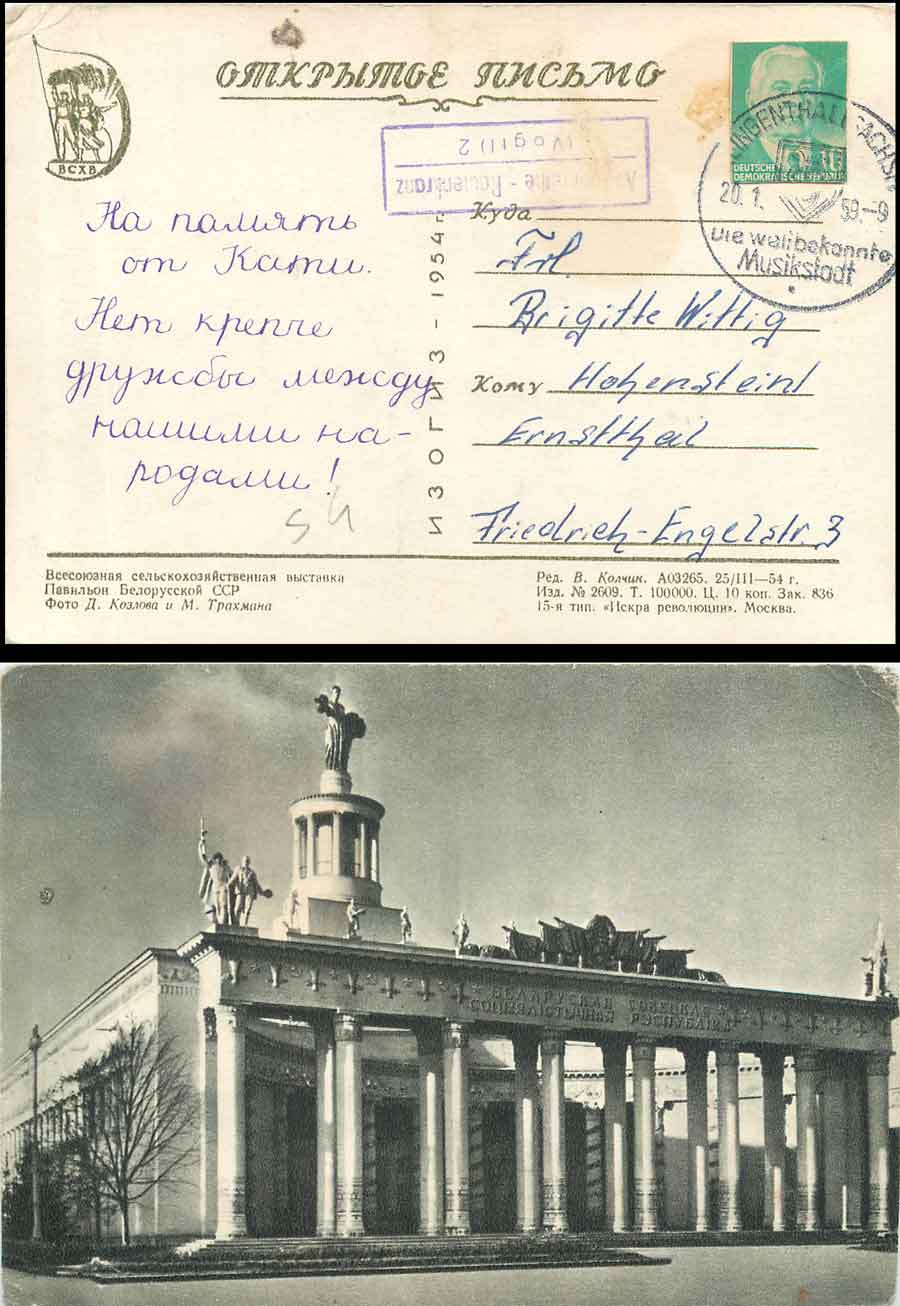 ОТКРЫТОЕ ПИСЬМО
ВСХВ
DEUTSCHE
DEMOKRATISCHE REPUBLIK
KLINGENTHAL (SACHS)
20.1.59.-9
Die weltbekannte
Musikstadt
- Rautenkranz
(Vogtl) 2
На память
от Кати.
Нет крепче
дружбы между
нашими на-
родами!
54
ИЗОГИЗ - 1954 г.
Куда
Frl.
Brigitte Wittig
Кому Hohenstein/
Ernstthal
Friedrich-Engelstr. 3
Всесоюзная сельскохозяйственная выставка
Павильон Белорусской ССР
Фото Д. Козлова и М. Трахмана
Ред. В. Колчик. А03265. 25/III—54 г.
Изд. № 2609. Т. 100000. Ц. 10 коп. Зак. 836
15-я тип. «Искра революции». Москва.
БЕЛАРУСКАЯ СОВЕЦКАЯ
СОЦЫЯЛІСТЫЧНАЯ РЭСПУБЛІКА